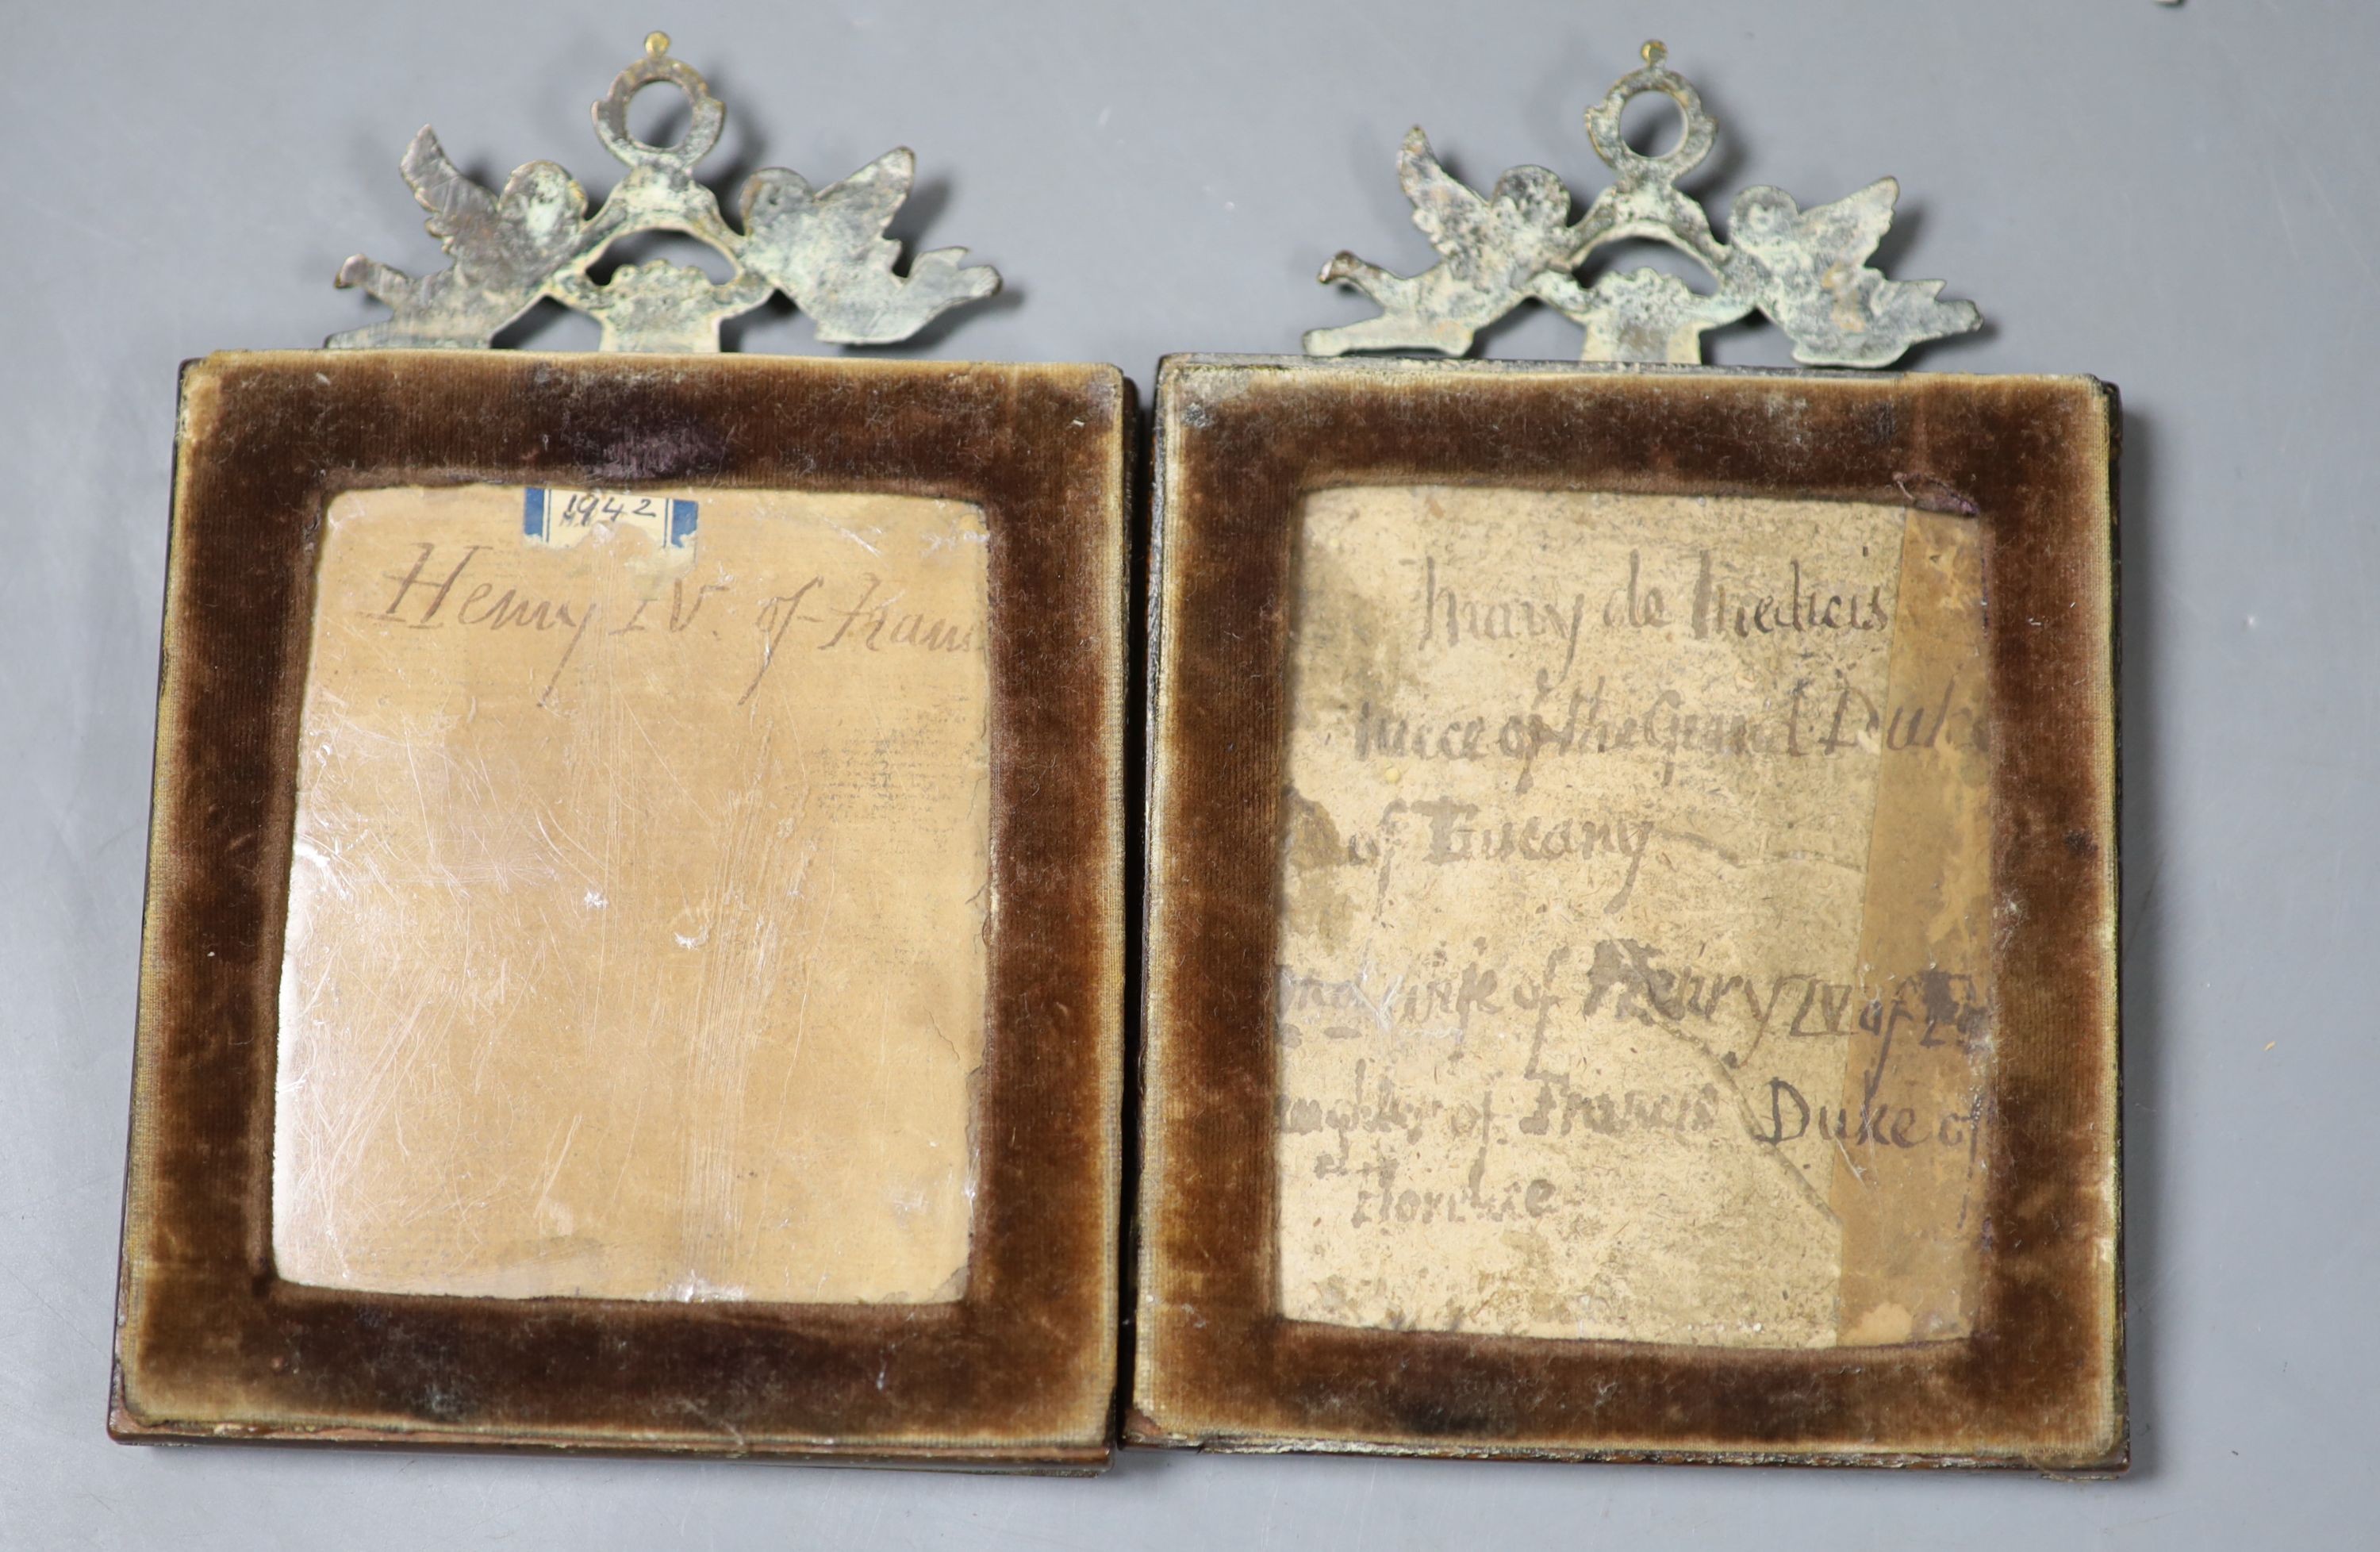 1942
Henry IV. of Fran
Mary de Medicis
Niece of the Grand Duke
of Tuscany
ond wife of Henry IV of
aughter of Francis Duke of
Florence